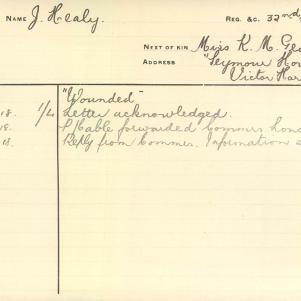 NAME J. Healy. REG. &C. 32nd
NEXT OF KIN Miss K. M.
ADDRESS "Seymour
Victor Har
"Wounded"
18. 1/4 Letter acknowledged.
18. Cable forwarded Commrs
18. Reply from Commrs. Information